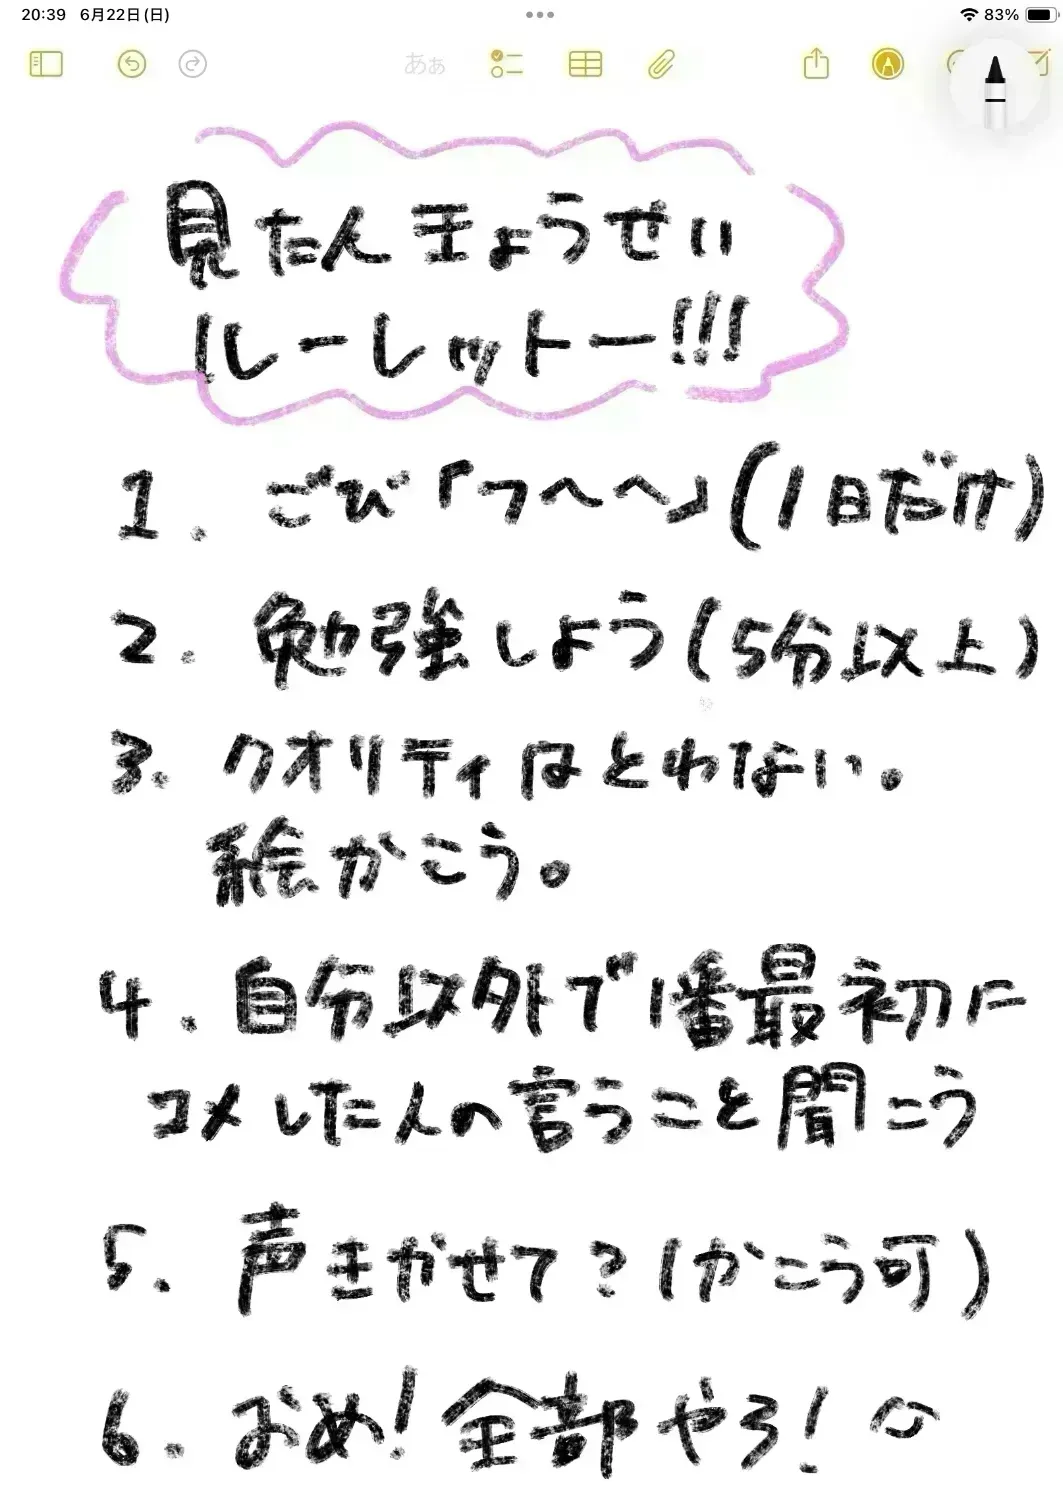 20:39 6月22日(日)
83%
あぁ
見たん きょうせい
ルーレットー!!!
1. ごび「フヘヘ」(1日だけ)
2. 勉強しよう(5分以上)
3. クオリティはとわない。
絵かこう。
4. 自分以外で1番最初に
コメした人の言うこと聞こう
5. 声きかせて?(かこう可)
6. おめ!全部やろ!